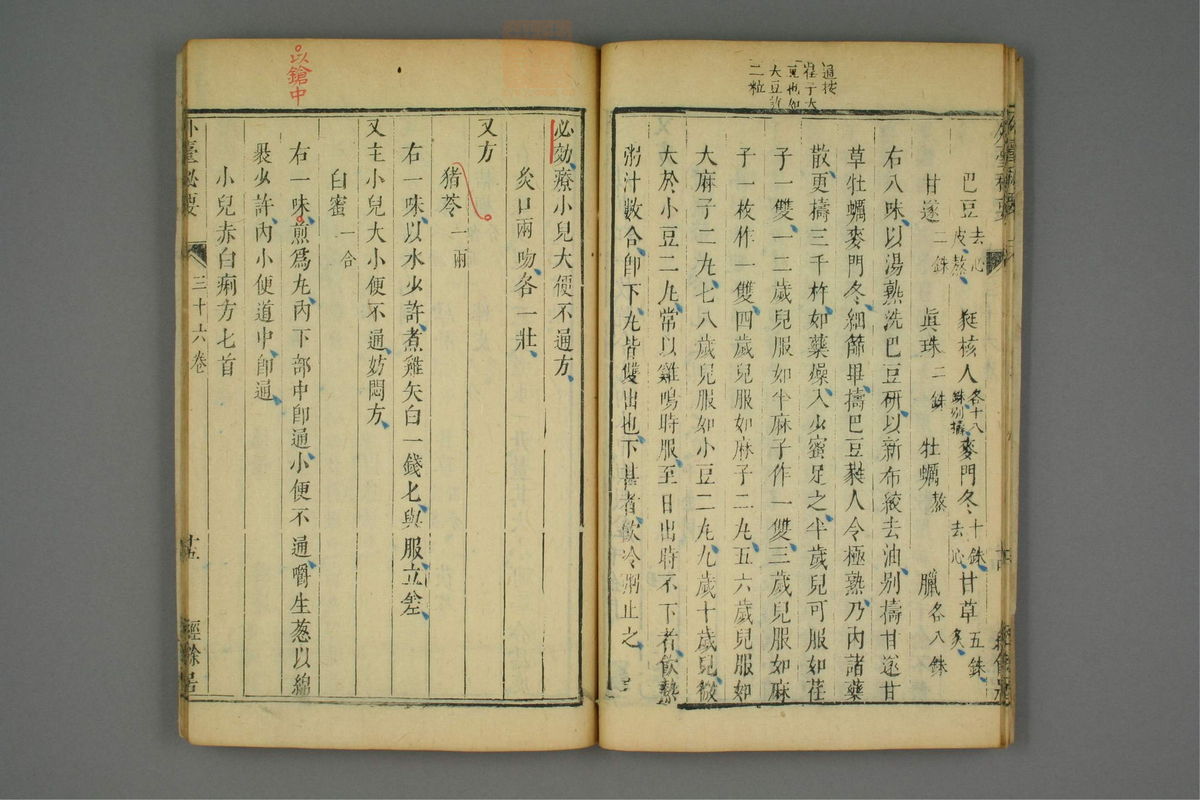 巴豆去心皮熬 蕤核人各十八銖別擣 麥門冬十銖去心 甘草五銖炙
甘遂二銖 眞珠二銖 牡蠣熬 臘各八銖
右八味以湯熟洗巴豆研以新布絞去油别擣甘遂甘
草牡蠣麥門冬細篩畢擣巴豆蕤人令極熟乃内諸藥
散更擣三千杵如藥燥入少蜜足之半歲兒可服如荏
子一雙一二歲兒服如半麻子作一雙三歲兒服如麻
子一枚作一雙四歲兒服如麻子二丸五六歲兒服如
大麻子二丸七八歲兒服如小豆二丸九歲十歲兒微
大於小豆二丸常以雞鳴時服至日出時不下者飲熱
粥汁數合卽下丸皆雙出也下甚者飲冷粥止之
必効療小兒大便不通方
灸口兩吻各一壯
又方
猪苓一兩
右一味以水少許煮雞矢白一錢匕與服立差
又主小兒大小便不通妨悶方
白蜜一合
右一味煎爲丸内下部中卽通小便不通嚼生葱以綿
裹少許内小便道中卽通
小兒赤白痢方七首
外臺祕要 三十六卷 十五 經餘居
以鎗中
大豆許
二粒